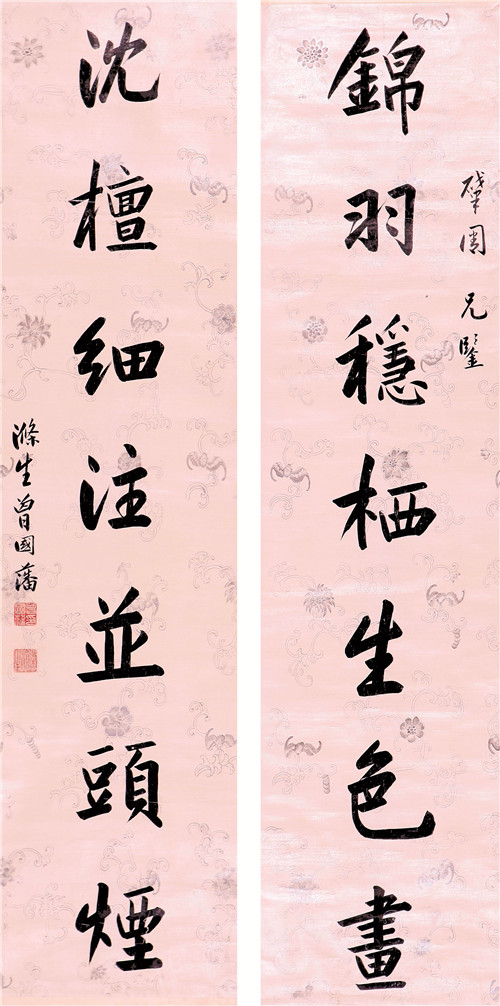 錦羽穩栖生色畫
犀團兄鑒
沈檀細注並頭煙
滌生曾國藩